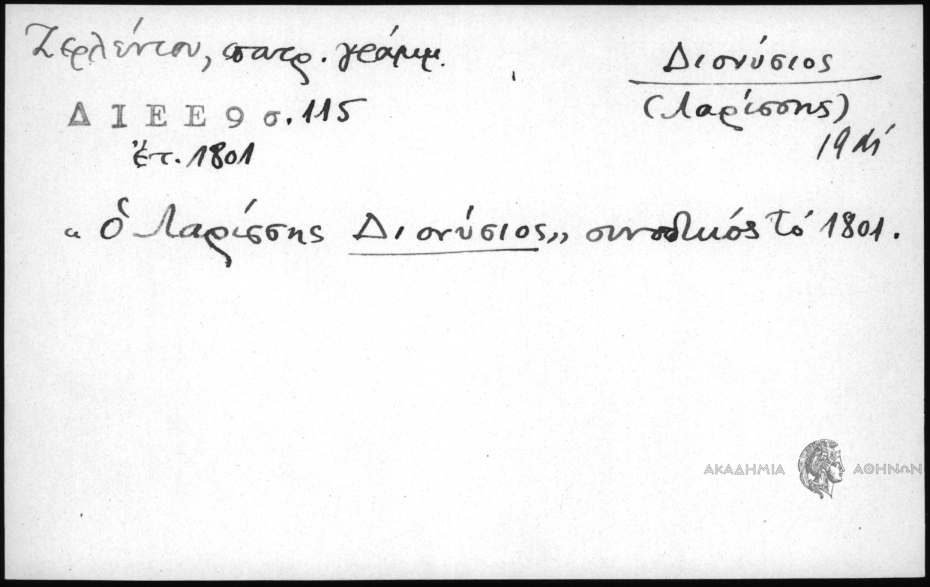 Ζερλέντου, πατρ. γράμμ.
Διονύσιος
(Λαρίσσης)
19
Δ Ι Ε Ε 9 σ. 115
ἔτ. 1801
„ ὁ Λαρίσσης Διονύσιος„ συνοδικός τό 1801.
ΑΚΑΔΗΜΙΑ ΑΘΗΝΩΝ